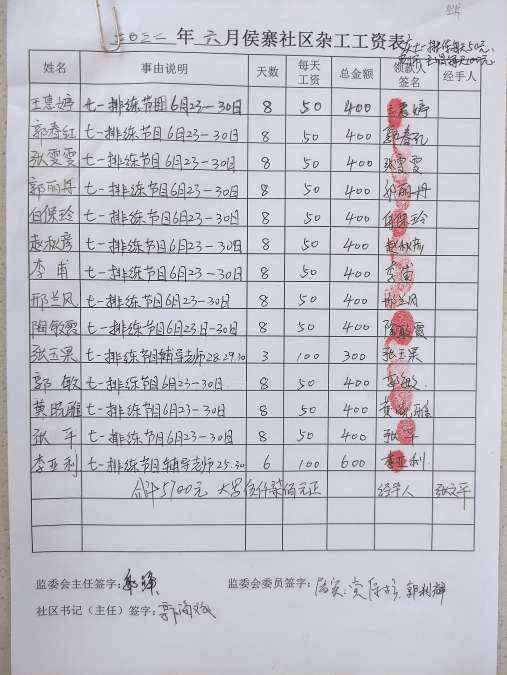 二0二二年六月侯寨社区杂工工资表
姓名 事由说明 天数 每天工资 总金额 领款人签名 经手人
王惠婷 七一排练节目6月23—30日 8 50 400 王惠婷
郭春红 七一排练节目6月23—30日 8 50 400 郭春红
张雯雯 七一排练节目6月23—30日 8 50 400 张雯雯
郭丽丹 七一排练节目6月23—30日 8 50 400 郭丽丹
白保玲 七一排练节目6月23—30日 8 50 400 白保玲
赵秋彦 七一排练节目6月23—30日 8 50 400 赵秋彦
李甫 七一排练节目6月23—30日 8 50 400 李甫
邢兰风 七一排练节目6月23—30日 8 50 400 邢兰风
陶敏霞 七一排练节目6月23日—30日 8 50 400 陶敏霞
张玉果 七一排练节目辅导老师28.29.30 3 100 300 张玉果
郭敏 七一排练节目6月23—30日 8 50 400 郭敏
黄晓雅 七一排练节目6月23—30日 8 50 400 黄晓雅
张平 七一排练节目6月23—30日 8 50 400 张平
李亚利 七一排练节目辅导老师25.30 6 100 600 李亚利
合计5700元 大写伍仟柒佰元正 经学人 张文平
监委会主任签字： 监委会委员签字： 郭利辉
社区书记（主任）签字：